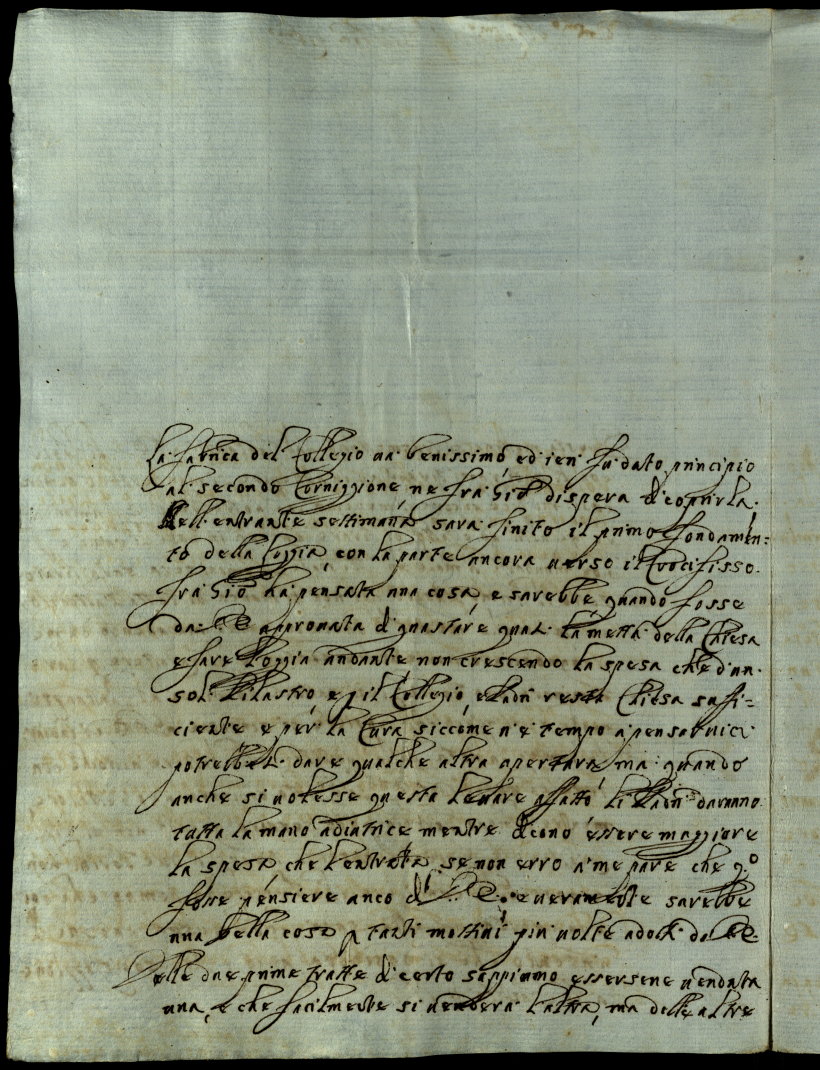 La fabrica del Collegio va benissimo ed ieri fu dato principio
al secondo Corniggione ne fra Giō dispera di coprirla.
Nell entrante settimana sara finito il primo fondamen=
to della Loggia, con la parte ancora verso il Crocifisso.
fra Giō ha pensata una cosa, e sarebbe quando fosse
da approvata di guastare quel la metta della Chiesa
e fare Loggia andante non crescendo la spesa che d'un
sol Pilastro e p il Collegio e resta Chiesa suffi=
ciente e per la Cura siccome n'e tempo a pensarvici
potrebbe dare qualche altra apertura, ma quando
anche si volesse questa levare affatto li daranno
tutta la mano adiutrice mentre dicono essere maggiore
la spesa che l'entrata, se non erro a me pare che q.o
fosse pensiere anco di e veramente sarebbe
una bella cosa p tanti mottivi piu volte adott. da
Delle due prime tratte di certo sappiamo essersene venduta
una, e che facilmente si vendera l'altra, ma delle altre